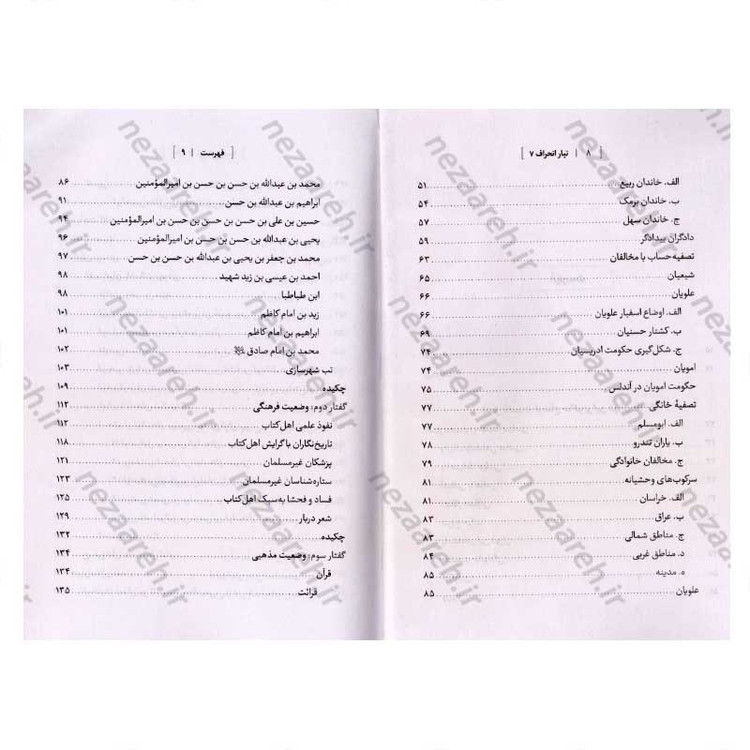 [ ۸ | تبار انحراف ۷ ]
الف. خاندان ربیع ۵۱
ب. خاندان برمک ۵۴
ج. خاندان سهل ۵۷
دادگران بیدادگر ۵۹
تصفیه حساب با مخالفان ۶۳
شیعیان ۶۵
علویان ۶۶
الف. اوضاع اسفبار علویان ۶۶
ب. کشتار حسنیان ۶۹
ج. شکل‌گیری حکومت ادریسیان ۷۴
امویان ۷۴
حکومت امویان در آندلس ۷۵
تصفیهٔ خانگی ۷۷
الف. ابومسلم ۷۷
ب. یاران تندرو ۷۸
ج. مخالفان خانوادگی ۷۹
سرکوب‌های وحشیانه ۸۱
الف. خراسان ۸۱
ب. عراق ۸۳
ج. مناطق شمالی ۸۳
د. مناطق غربی ۸۴
ه. مدینه ۸۵
علویان ۸۵
[ فهرست | ۹ ]
محمد بن عبدالله بن حسن بن حسن بن امیرالمؤمنین ۸۶
ابراهیم بن عبدالله بن حسن ۹۱
حسین بن علی بن حسن بن حسن بن حسن بن امیرالمؤمنین ۹۴
یحیی بن عبدالله بن حسن بن حسن بن امیرالمؤمنین ۹۶
محمد بن جعفر بن یحیی بن عبدالله بن حسن بن حسن ۹۷
احمد بن عیسی بن زید شهید ۹۸
ابن طباطبا ۹۸
زید بن امام کاظم ۱۰۱
ابراهیم بن امام کاظم ۱۰۱
محمد بن امام صادق ۱۰۲
تب شهرسازی ۱۰۳
چکیده ۱۰۹
گفتار دوم: وضعیت فرهنگی ۱۱۲
نفوذ علمی اهل‌کتاب ۱۱۲
تاریخ‌نگاران با گرایش اهل‌کتاب ۱۱۸
پزشکان غیرمسلمان ۱۲۱
ستاره‌شناسان غیرمسلمان ۱۲۳
فساد و فحشا به سبک اهل‌کتاب ۱۲۵
شعر دربار ۱۲۹
چکیده ۱۳۲
گفتار سوم: وضعیت مذهبی ۱۳۴
قرآن ۱۳۴
قرائت ۱۳۵
nezaareh.ir